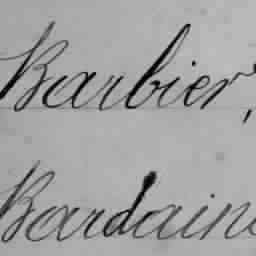 Barbier,
Bardain